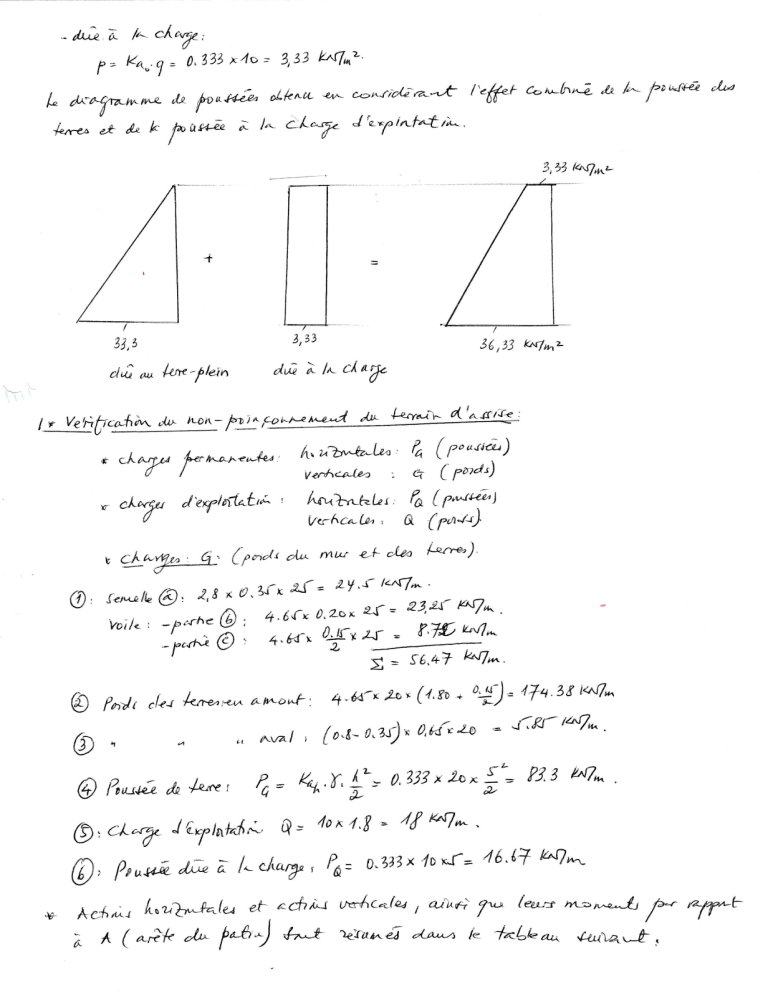 - dûe à la charge:
p = Ka₀·q = 0.333 × 10 = 3,33 KN/m².
Le diagramme de poussées obtenu en considérant l'effet combiné de la poussée des
terres et de la poussée à la charge d'explotation.
3,33 KN/m²
+
=
33,3
3,33
36,33 KN/m²
dûe au terre-plein
dûe à la charge
1* Vérification du non-poinçonnement du terrain d'assise:
* charges permanentes: horizontales: PG (poussées)
verticales : G (poids)
* charges d'explotation: horizontales: PQ (poussées)
Verticales: Q (poids).
* Charges: G: (poids du mur et des terres).
①: semelle ⓐ: 2,8 × 0.35 × 25 = 24.5 KN/m.
Voile: - partie ⓑ: 4.65 × 0,20 × 25 = 23,25 KN/m.
- partie ⓒ: 4.65 × 0.15/2 × 25 = 8.72 KN/m
Σ = 56.47 KN/m.
② Poids des terres en amont: 4.65 × 20 × (1.80 + 0.15/2) = 174.38 KN/m
③ " " " aval: (0.8-0.35) × 0,65 × 20 = 5.85 KN/m.
④ Poussée de terre: PG = Kah·γ·h²/2 = 0.333 × 20 × 5²/2 = 83.3 KN/m.
⑤: Charge d'Explotation Q = 10 × 1.8 = 18 KN/m.
⑥: Poussée dûe à la charge, PQ = 0.333 × 10 × 5 = 16.67 KN/m
* Actions horizontales et actions verticales, ainsi que leurs moments par rapport
à A (arête du patin) sont résumés dans le tableau suivant.